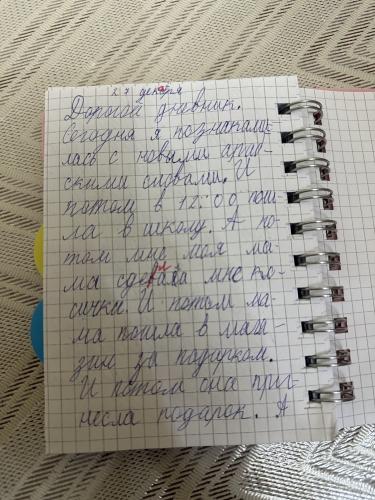 27 декабря
Дорогой дневник.
Сегодня я познаками-
лась с новыми англ-
скими словами. И
потом в 12:00 пош-
ла в школу. А по-
том мне моя ма-
ма сделала мне ко-
сички. И потом ма-
ма пошла в мага-
зин за подарком.
И потом она при-
несла подарок. А